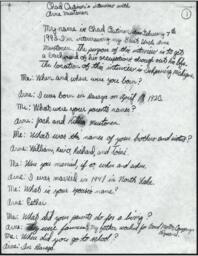 Chad Chapman's interview with
Arne Mustonen
1
My name is Chad February 7th
1993. I'm interviewing my Arne
Mustonen. The purpose of the interview is to get
a background of his occupations through out his life.
The location of the interview is Michigan.
Me: When and where were you born?
Arne: I was born in on April 1920.
Me: What were your parents names?
Arne: Jack and
Me: What was the name of your brothers and sisters?
Arne: William, Richard, and
Me: Were you married, if so, when and where.
Arne: I was married in 1941 in North Lake.
Me: What is your spouse's name?
Arne: Esther
Me: What did your parents do for a living?
Arne: were farmers, my father worked for
Me: Where did you go to school?
Arne: In